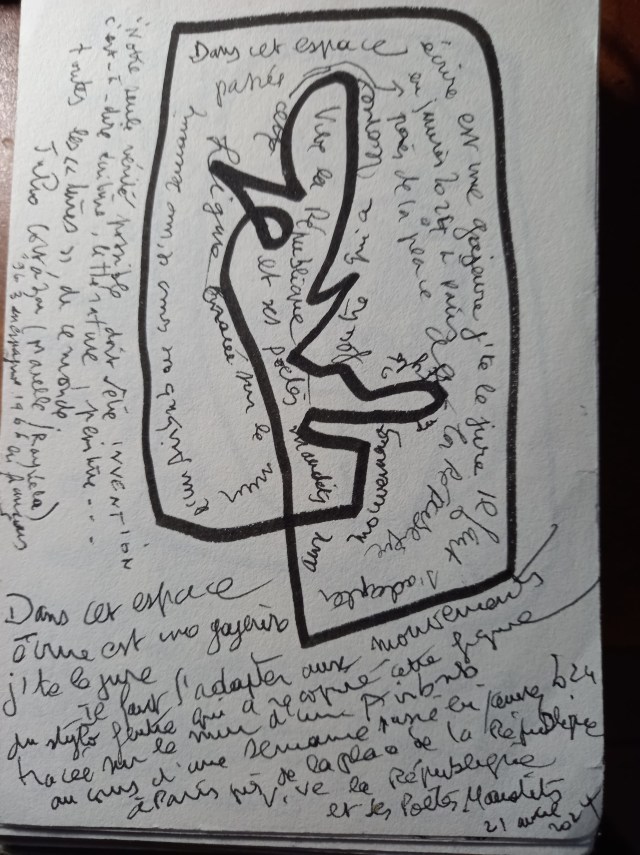 Dans cet espace
écrire est une gageure j'te le jure Il faut s'adapter
passée
en janvier 2024 à Paris
près de la place
de la République
Vive la République et ses poètes Maudits
cette
figure tracée sur le mur
d'un
au cours d'une semaine
mouvement
"Notre seule vérité possible doit être invention
c'est-à-dire écriture, littérature, peinture...
toutes les cultures, de ce monde
Julio Cortázar (Marelle/Rayuela)
1963 en espagnol 1966 en français
Dans cet espace
écrire est une gageure
j'te le jure
Il faut s'adapter aux mouvements
du stylo feutre qui a recopié cette figure
tracée sur le mur d'un
au cours d'une semaine passée en janvier 2024
à Paris près de la place de la République
Vive la République
et ses Poètes Maudits
21 avril
2024